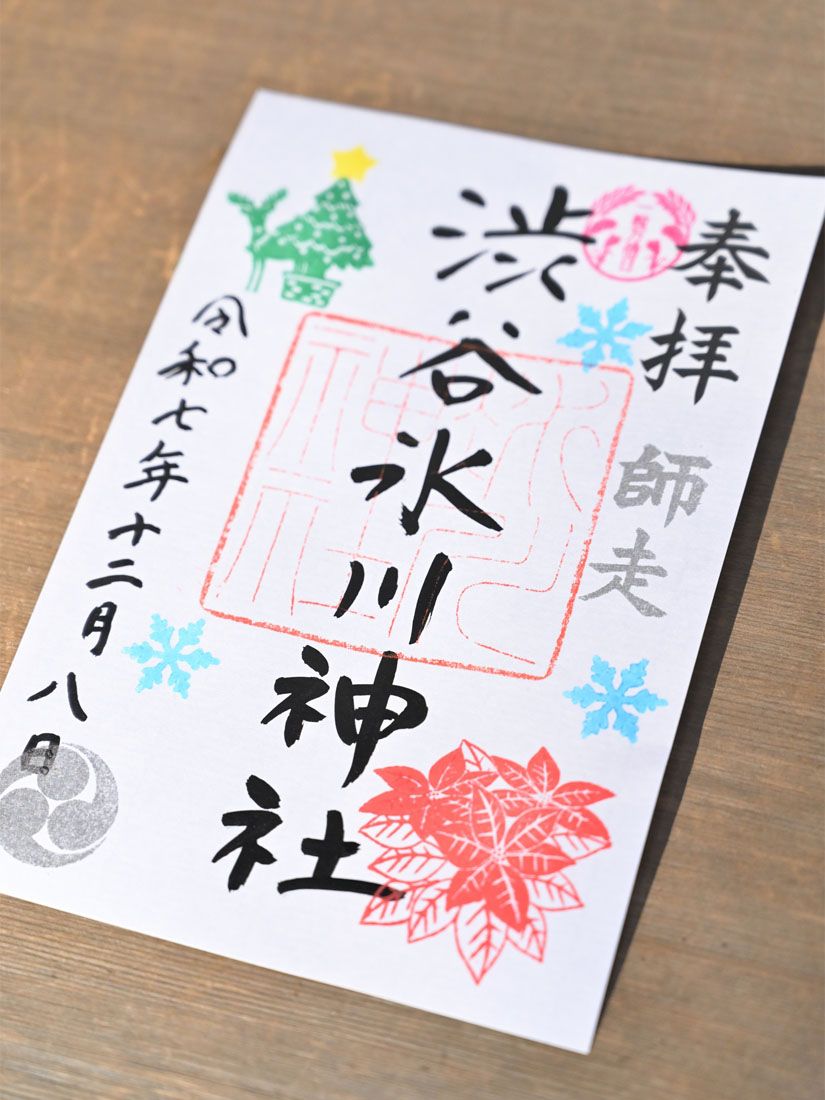 奉拝
師走
渋谷氷川神社
令和七年十二月八日